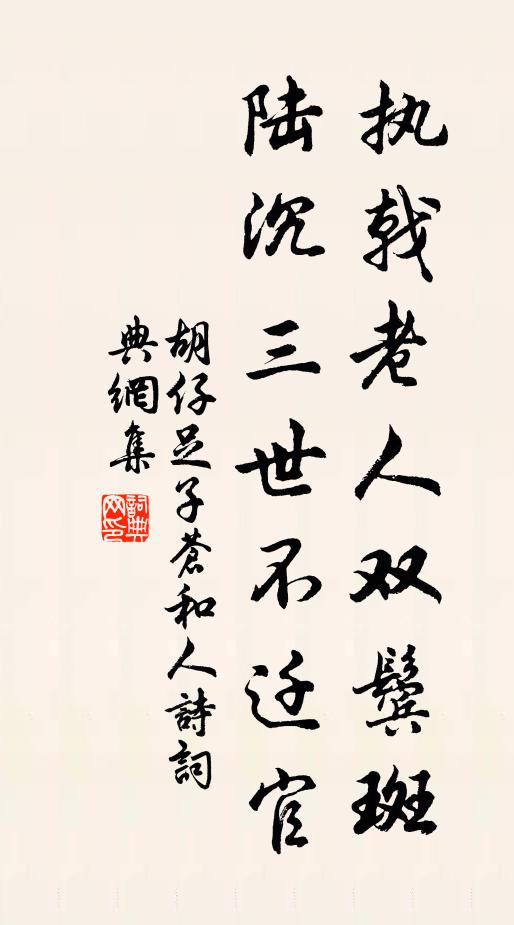 执戟老人双鬓斑
陆沉三世不迁官
胡仔足子蒼和人詩詞
典網集
詞典網印